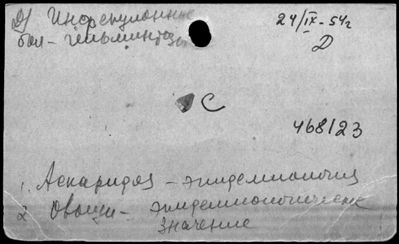 Д) Инфекционные
бол - гельминтозы
24/IX - 54г
Д
С
468123
1. Аскаридоз - эпидемиология
2 Овощи - эпидемиологическ
значение